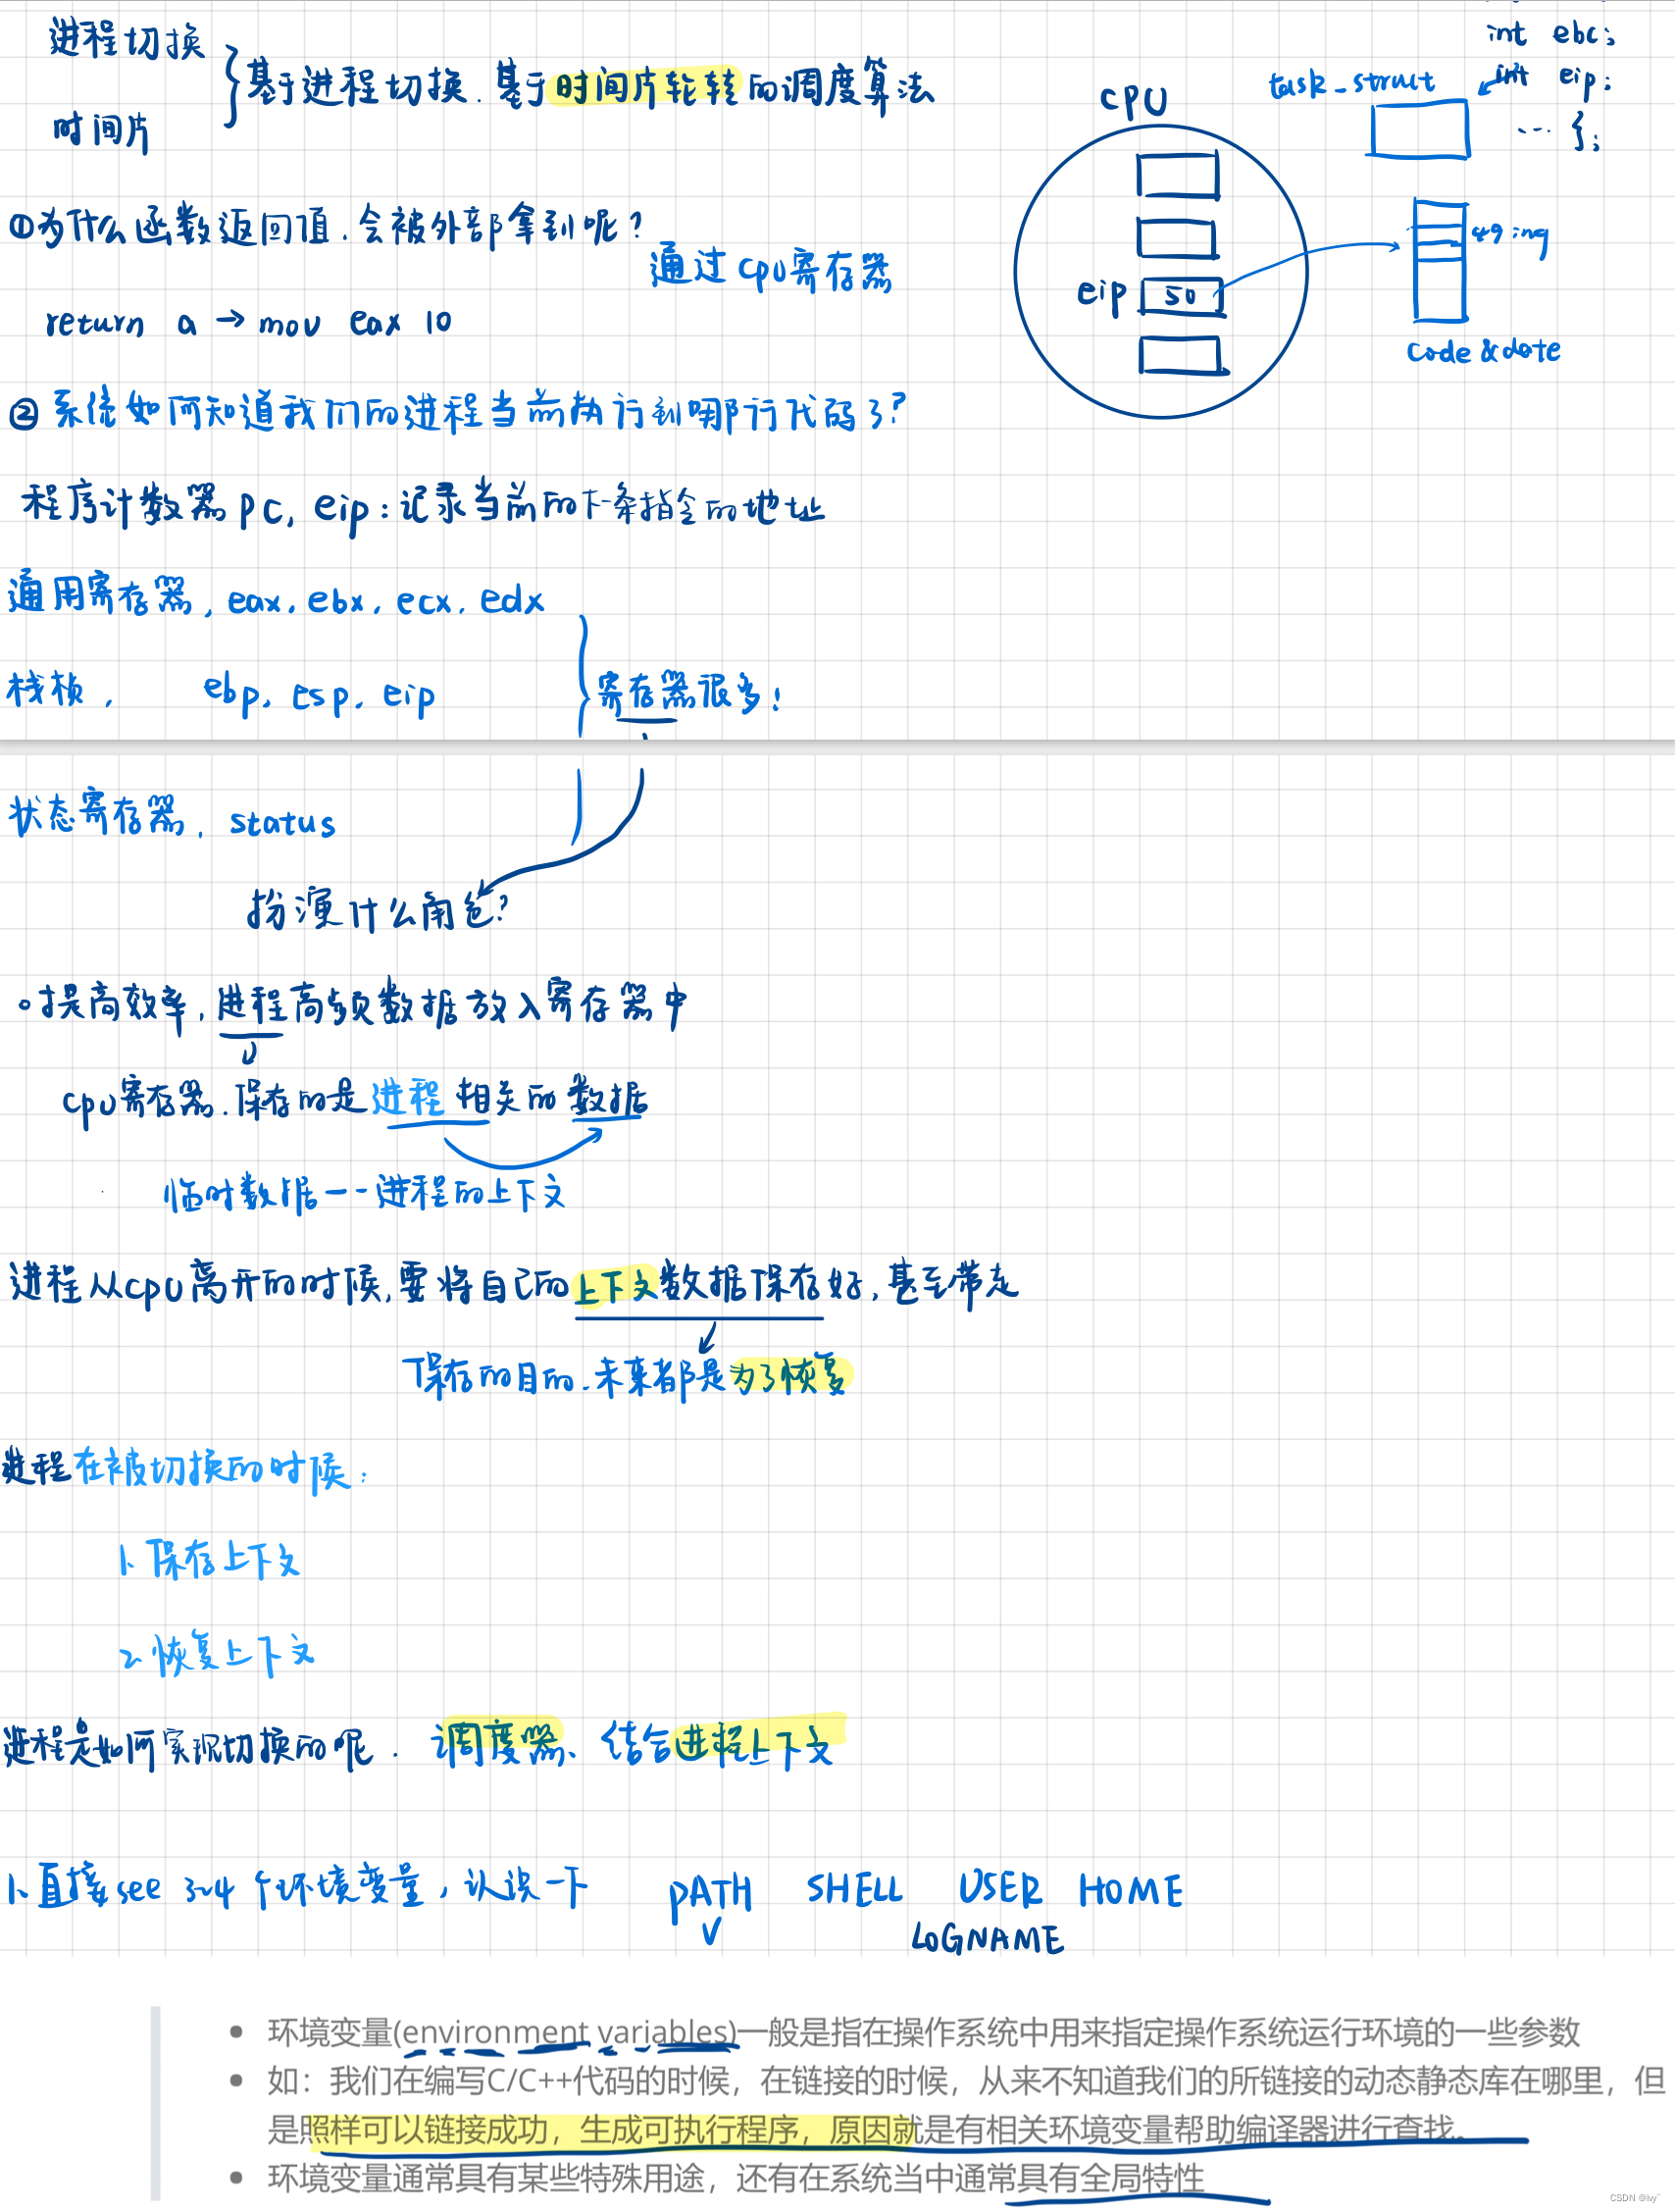 进程切换
时间片
基于进程切换.基于时间片轮转的调度算法
cpu
task_struct
int ebc;
int eip;
... };
①为什么函数返回值.会被外部拿到呢?
通过cpu寄存器
return a → mov eax 10
eip 50
49 ing
code & date
②系统如何知道我们的进程当前执行到哪行代码了?
程序计数器pc, eip:记录当前的下一条指令的地址
通用寄存器, eax. ebx. ecx. edx
栈桢, ebp, esp, eip
寄存器很多!
状态寄存器, status
扮演什么角色?
。提高效率,进程高频数据放入寄存器中
cpu寄存器.保存的是进程相关的数据
临时数据--进程的上下文
进程从cpu离开的时候,要将自己的上下文数据保存好,甚至带走
保存的目的.未来都是为了恢复
进程在被切换的时候:
1、保存上下文
2、恢复上下文
进程是如何实现切换的呢. 调度器、结合进程上下文
1、直接see 3~4个环境变量,认识一下 PATH SHELL USER HOME
LOGNAME
• 环境变量(environment variables)一般是指在操作系统中用来指定操作系统运行环境的一些参数
• 如：我们在编写C/C++代码的时候，在链接的时候，从来不知道我们的所链接的动态静态库在哪里，但
是照样可以链接成功，生成可执行程序，原因就是有相关环境变量帮助编译器进行查找。
• 环境变量通常具有某些特殊用途，还有在系统当中通常具有全局特性
CSDN @ivy~